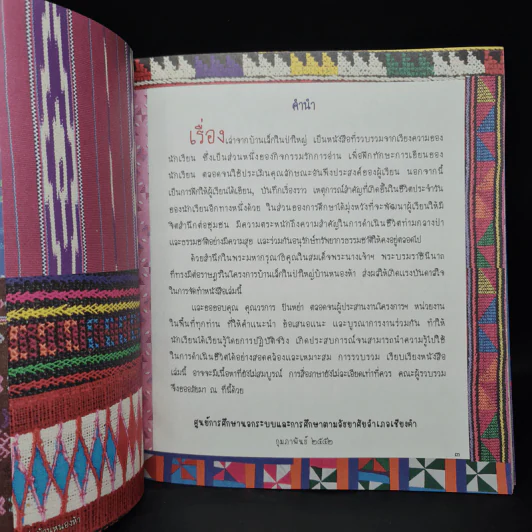 คำนำ
เรื่องเล่าจากบ้านเล็กในป่าใหญ่ เป็นหนังสือที่รวบรวมจากเรียงความของ
นักเรียน ซึ่งเป็นส่วนหนึ่งของกิจกรรมรักการอ่าน เพื่อฝึกทักษะการเขียนของ
นักเรียน ตลอดจนใช้ประเมินคุณลักษณะอันพึงประสงค์ของผู้เรียน นอกจากนี้
เป็นการฝึกให้ผู้เรียนได้เขียน, บันทึกเรื่องราว เหตุการณ์สำคัญที่เกิดขึ้นในชีวิตประจำวัน
ของนักเรียนอีกทางหนึ่งด้วย ในส่วนของการศึกษาได้มุ่งหวังที่จะพัฒนาผู้เรียนให้มี
จิตสำนึกต่อชุมชน มีความตระหนักถึงความสำคัญในการดำเนินชีวิตท่ามกลางป่า
และธรรมชาติอย่างมีความสุข และร่วมกันอนุรักษ์ทรัพยากรธรรมชาติให้คงอยู่ตลอดไป
ด้วยสำนึกในพระมหากรุณาธิคุณในสมเด็จพระนางเจ้าฯ พระบรมราชินีนาถ
ที่ทรงมีต่อราษฎรในโครงการบ้านเล็กในป่าใหญ่บ้านหนองห้า ส่งผลให้เกิดแรงบันดาลใจ
ในการจัดทำหนังสือเล่มนี้
และขอขอบคุณ คุณวรการ ยินหย่า ตลอดจนผู้ประสานงานโครงการฯ หน่วยงาน
ในพื้นที่ทุกท่าน ที่ให้คำแนะนำ ข้อเสนอแนะ และบูรณาการงานร่วมกัน ทำให้
นักเรียนได้เรียนรู้โดยการปฏิบัติจริง เกิดประสบการณ์จนสามารถนำความรู้ไปใช้
ในการดำเนินชีวิตได้อย่างสอดคล้องและเหมาะสม การรวบรวม เรียบเรียงหนังสือ
เล่มนี้ อาจจะมีเนื้อหาที่ยังไม่สมบูรณ์ การสื่อภาษายังไม่ละเอียดเท่าที่ควร คณะผู้รวบรวม
จึงขออภัยมา ณ ที่นี้ด้วย
ศูนย์การศึกษานอกระบบและการศึกษาตามอัธยาศัยอำเภอเชียงคำ
กุมภาพันธ์ ๒๕๕๒